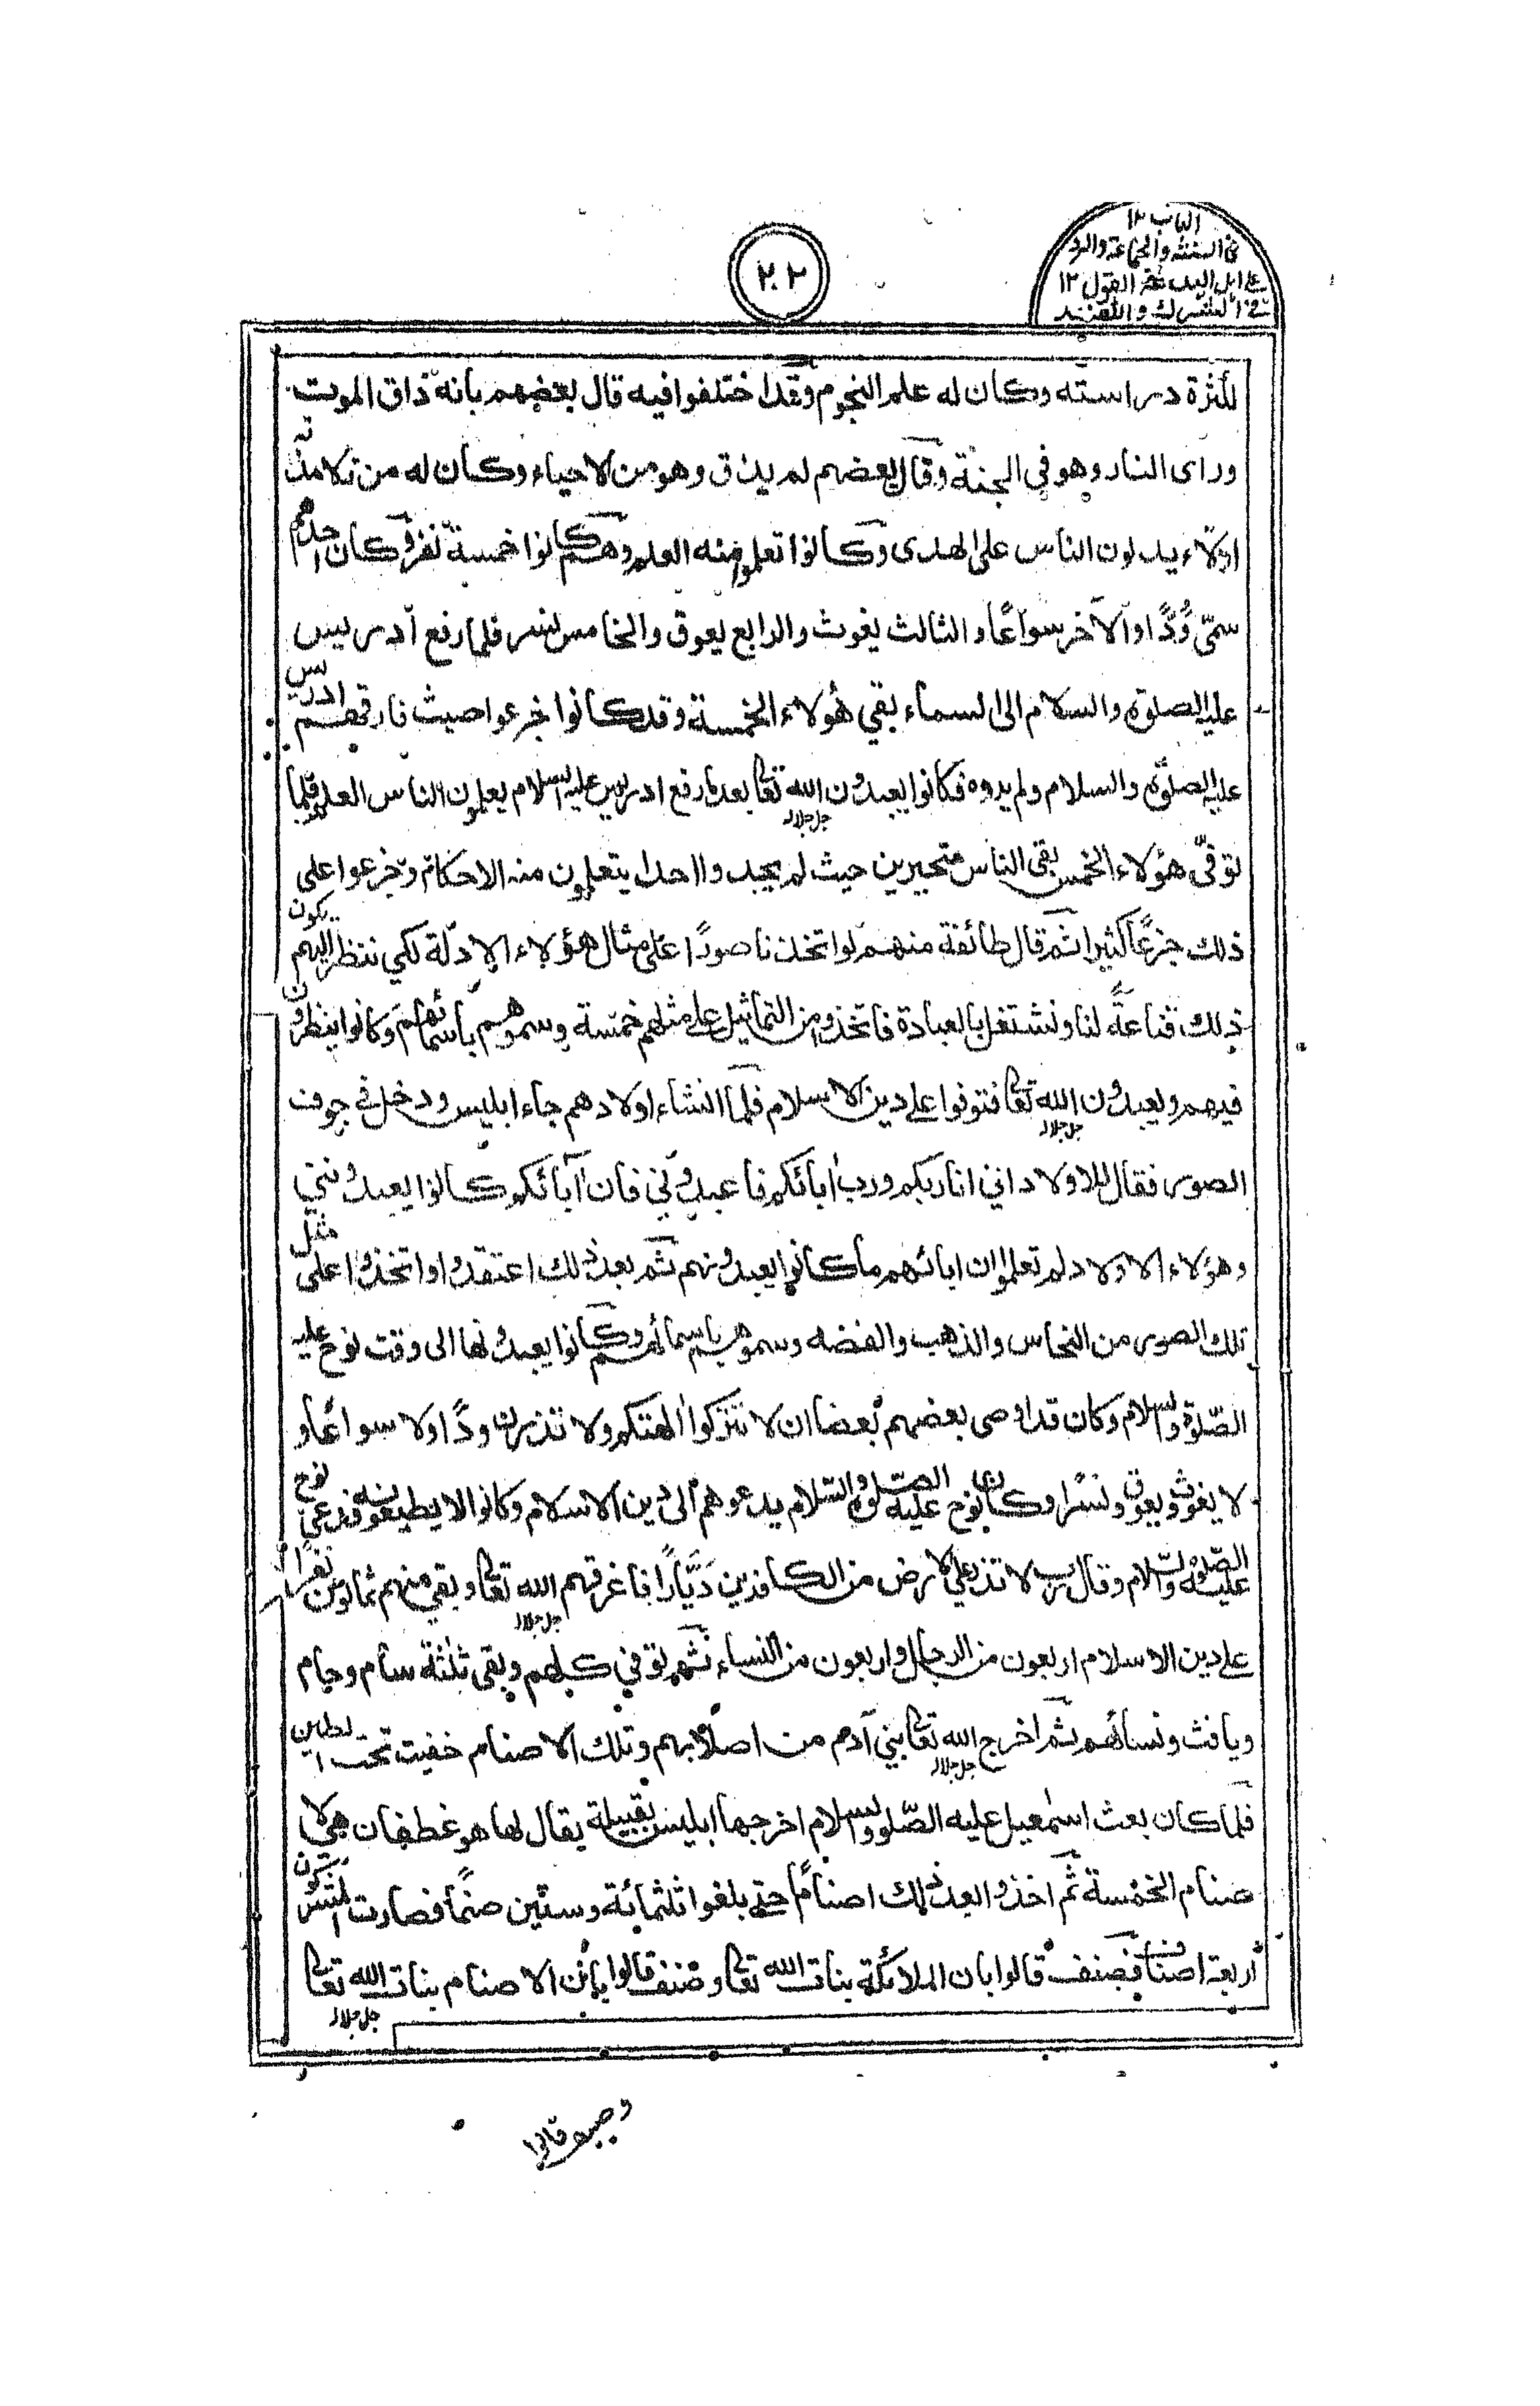 الباب ١٢
فی السنة والجماعة والرد
علے اهل البدعة القول ١٢
٢٠٢
لكثرة دراسته وكان له علم النجوم وقد اختلفوا فيه قال بعضهم بانه ذاق الموت
وراى النار وهو في الجنة وقال بعضهم لم يذق وهو من الاحياء وكان له من تلامذته
ادلاء يدلون الناس على الهدى وكانوا تعلموا منه العلم وهم كانوا خمسة نفر وكان احدهم
سمّى وُدًّا والآخر سواعًا والثالث يغوث والرابع يعوق والخامس نسر فلما رفع ادريس
عليه الصلوة والسلام الى السماء بقي هٰولاء الخمسة وقد كانوا جزعوا حيث فارقهم ادريس
عليه الصلوة والسلام ولم يروه فكانوا يعبدون الله تعالى جل جلاله بعد ما رفع ادريس عليه السلام يعلمون الناس العلم فلما
توفّى هؤلاء الخمس بقى الناس متحيرين حيث لم يجدوا احدا يتعلمون منه الاحكام وجزعوا على
ذلك جزعًا كثيرا ثم قال طائفة منهم لو اتخذنا صورًا على مثال هؤلاء الادلّة لكي ننتظر اليهم يكون
ذلك قناعةً لنا ونشتغل بالعبادة فاتخذوا من التماثيل على مثلهم خمسة وسموهم باسمائهم وكانوا ينظرون
فيهم ويعبدون الله تعالى جل جلاله فتوفوا على دين الاسلام فلما انشاء اولادهم جاء ابليس ودخل في جوف
الصور فقال للاولاد اني انا ربكم ورب اٰبائكم فاعبدوني فان اٰبائكم كانوا يعبدونني
وهؤلاء الاولاد لم تعلموا ان ابائهم ما كانوا يعبدونهم ثم بعد ذلك اعتقدوا واتخذوا على مثل
تلك الصور من النحاس والذهب والفضه وسموهم باسمائهم وكانوا يعبدونها الى وقت نوح عليه
الصّلوة والسلام وكان قد اوصى بعضهم بعضا ان لا تتركوا اٰلهتكم ولا تذرن ودًا ولا سواعًا و
لا يغوث ويعوق ونسرًا وكان نوح عليه الصلوة والسلام يدعوهم الى دين الاسلام وكانوا لا يطيعونه فدعى نوح
عليه الصّلوة والسّلام وقال رب لا تذر على الارض من الكافرين دَيَّارًا فاغرقهم الله تعالى جل جلاله وبقي منهم ثمانون نفرًا
على دين الاسلام اربعون من الرجال واربعون من النساء ثم توفي كلهم وبقى ثلثة سام وحام
ويافث ونسائهم ثم اخرج الله تعالى جل جلاله بني آدم من اصلابهم وتلك الاصنام خفيت تحت الطين
فلما كان بعث اسمٰعيل عليه الصّلوة والسلام اخرجها ابليس بقبيلة يقال لها هو غطفان هي الا
صنام الخمسة ثم اخذوا بعد ذلك اصنامًا حتى بلغوا ثلثمائة وستين صنمًا فصارت المشركون
اربعة اصناف فصنف قالوا بان الملائكة بنات الله تعالى وصنف قالوا بأن الاصنام بنات الله تعالى جل جلاله
وصنف قالوا